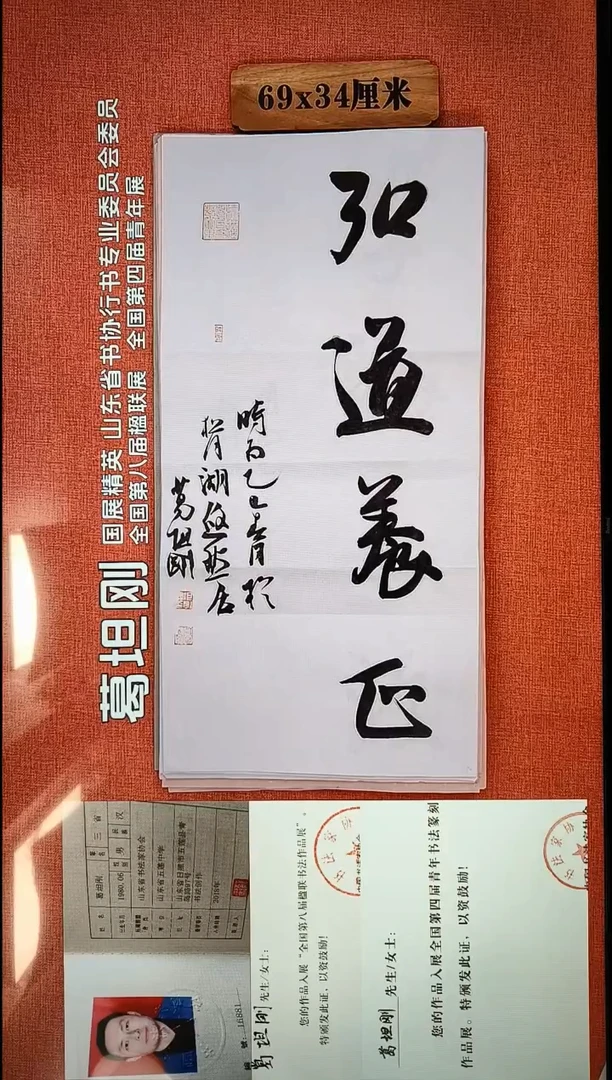 69x34厘米
葛坦刚
国展精英 山东省书协行书专业委员会委员
全国第八届楹联展 全国第四届青年展
弘道养正
時在乙巳春月於
湖居
葛坦剛
姓名 葛坦刚
1980.06
男
汉
山东省书法家协会
山东省五莲中学
书法创作
2019年
葛坦刚 先生/女士：
您的作品入展“全国第八届楹联书法作品展”。
特颁发此证，以资鼓励！
葛坦刚 先生/女士：
您的作品入展全国第四届青年书法篆刻
作品展。特颁发此证，以资鼓励！